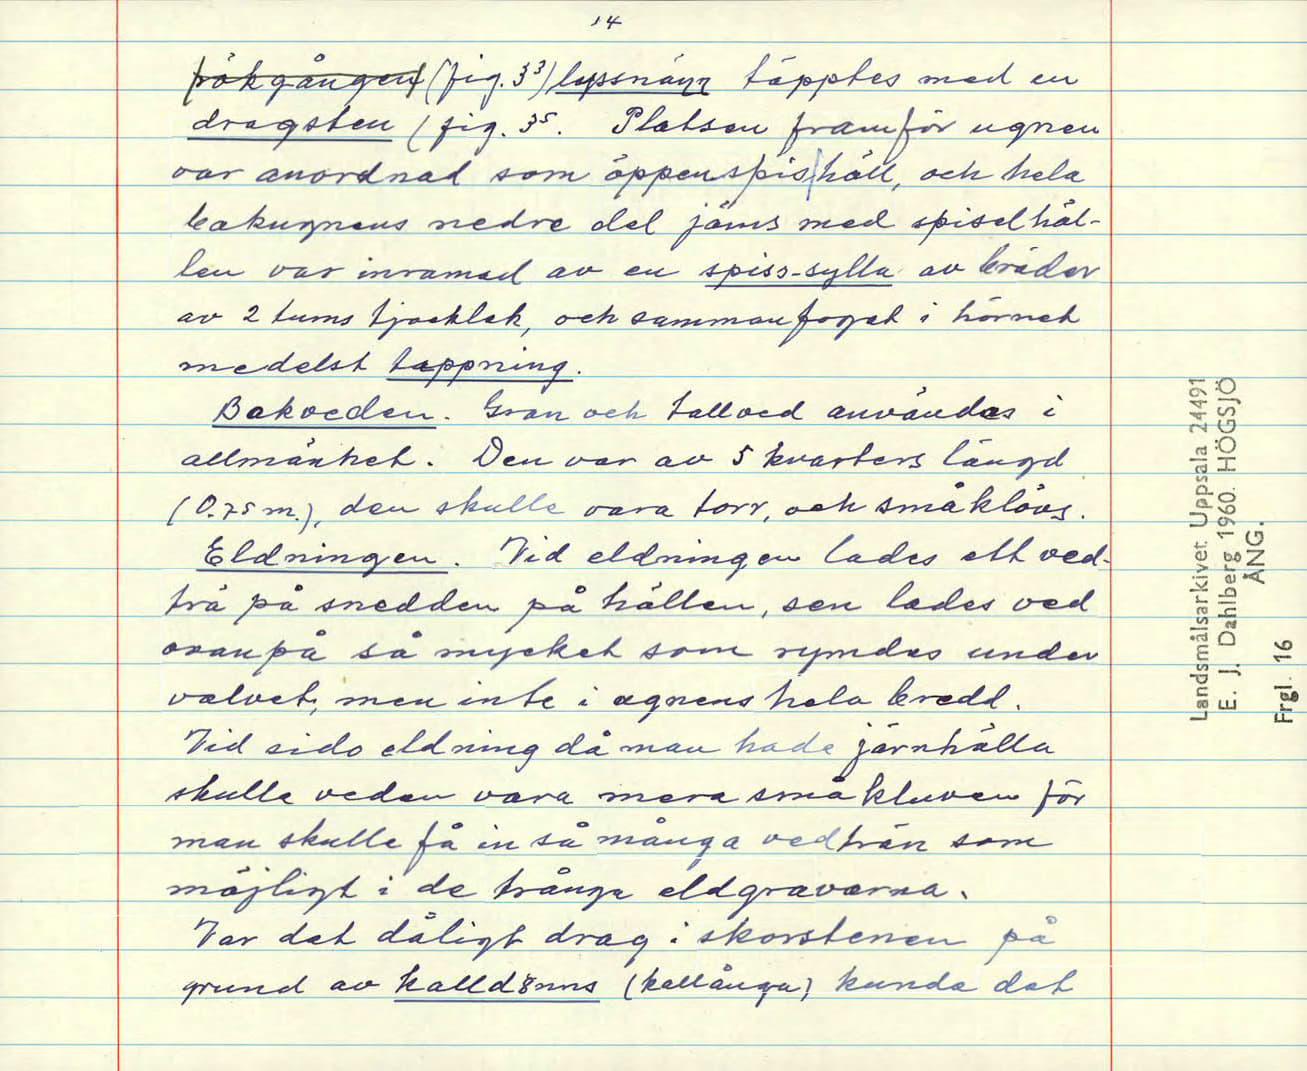 14
rökgången (fig. 33) lyssnäzz täpptes med en
dragsten (fig. 35. Platsen framför ugnen
var anordnad som öppenspishäll, och hela
bakugnens nedre del jäms med spiselhäl-
len var inramad av en spiss-sylla av bräder
av 2 tums tjocklek, och sammanfogat i hörnet
medelst tappning.
Bakveden. Gran och tallved användes i
allmänhet. Den var av 5 kvarters längd
(0.75 m.), den skulle vara torr, och småklövs.
Eldningen. Vid eldningen lades ett ved-
trä på snedden på hällen, sen lades ved
ovanpå så mycket som rymdes under
valvet, men inte i ugnens hela bredd.
Vid sido eldning då man hade järnhälla
skulle veden vara mera småkluven för
man skulle få in så många vedträn som
möjligt i de trånga eldgravarna.
Var det dåligt drag i skorstenen på
grund av kalldömns (kallånga) kunde det
Landsmålsarkivet Uppsala 24491
E. J. Dahlberg 1960. HÖGSJÖ
ÅNG.
Frgl. 16